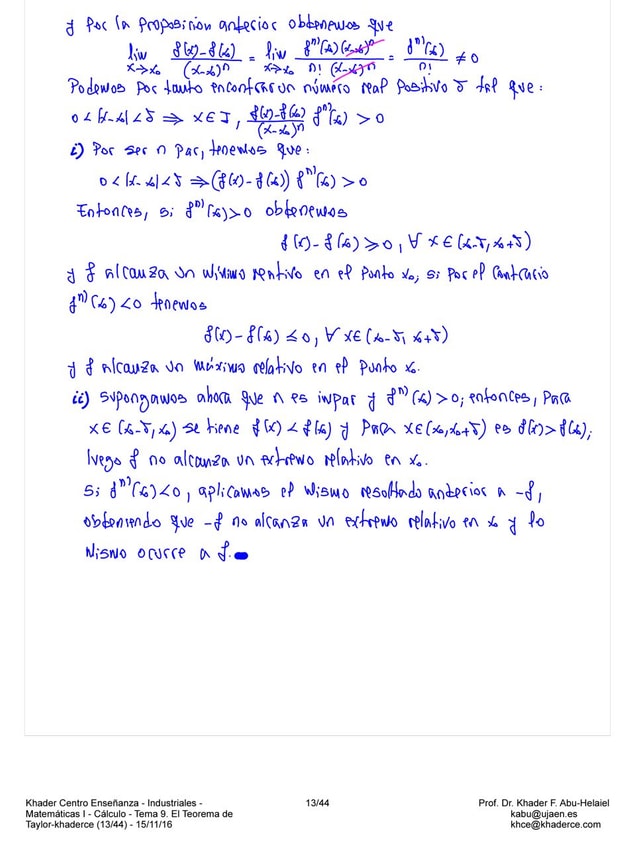 y por la proposición anterior obtenemos que
lim x→x₀ (f(x)-f(x₀))/(x-x₀)ⁿ = lim x→x₀ (fⁿ⁾(x₀)(x-x₀)ⁿ)/(n! (x-x₀)ⁿ) = fⁿ⁾(x₀)/n! ≠ 0
Podemos por tanto encontrar un número real positivo δ tal que:
0 < |x-x₀| < δ ⇒ x ∈ I, (f(x)-f(x₀))/(x-x₀)ⁿ fⁿ⁾(x₀) > 0
i) Por ser n par, tenemos que:
0 < |x-x₀| < δ ⇒ (f(x)-f(x₀)) fⁿ⁾(x₀) > 0
Entonces, si fⁿ⁾(x₀) > 0 obtenemos
f(x)-f(x₀) ≥ 0, ∀ x ∈ (x₀-δ, x₀+δ)
y f alcanza un mínimo relativo en el punto x₀; si por el contrario
fⁿ⁾(x₀) < 0 tenemos
f(x)-f(x₀) ≤ 0, ∀ x ∈ (x₀-δ, x₀+δ)
y f alcanza un máximo relativo en el punto x₀.
ii) Supongamos ahora que n es impar y fⁿ⁾(x₀) > 0; entonces, para
x ∈ (x₀-δ, x₀) se tiene f(x) < f(x₀) y para x ∈ (x₀, x₀+δ) es f(x) > f(x₀);
luego f no alcanza un extremo relativo en x₀.
Si fⁿ⁾(x₀) < 0, aplicamos el mismo resultado anterior a -f,
obteniendo que -f no alcanza un extremo relativo en x₀ y lo
mismo ocurre a f.
Khader Centro Enseñanza - Industriales -
Matemáticas I - Cálculo - Tema 9. El Teorema de
Taylor-khaderce (13/44) - 15/11/16
13/44
Prof. Dr. Khader F. Abu-Helaiel
kabu@ujaen.es
khce@khaderce.com